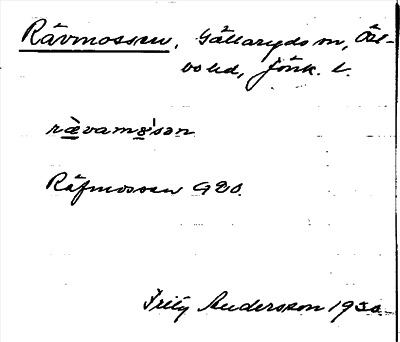 Rävmossen, Gällaryds sn, Öst-
bo hd, Jönk. l.
rævamo̱s'ən
Räfmossen GEO.
Fritz Andersson 1930